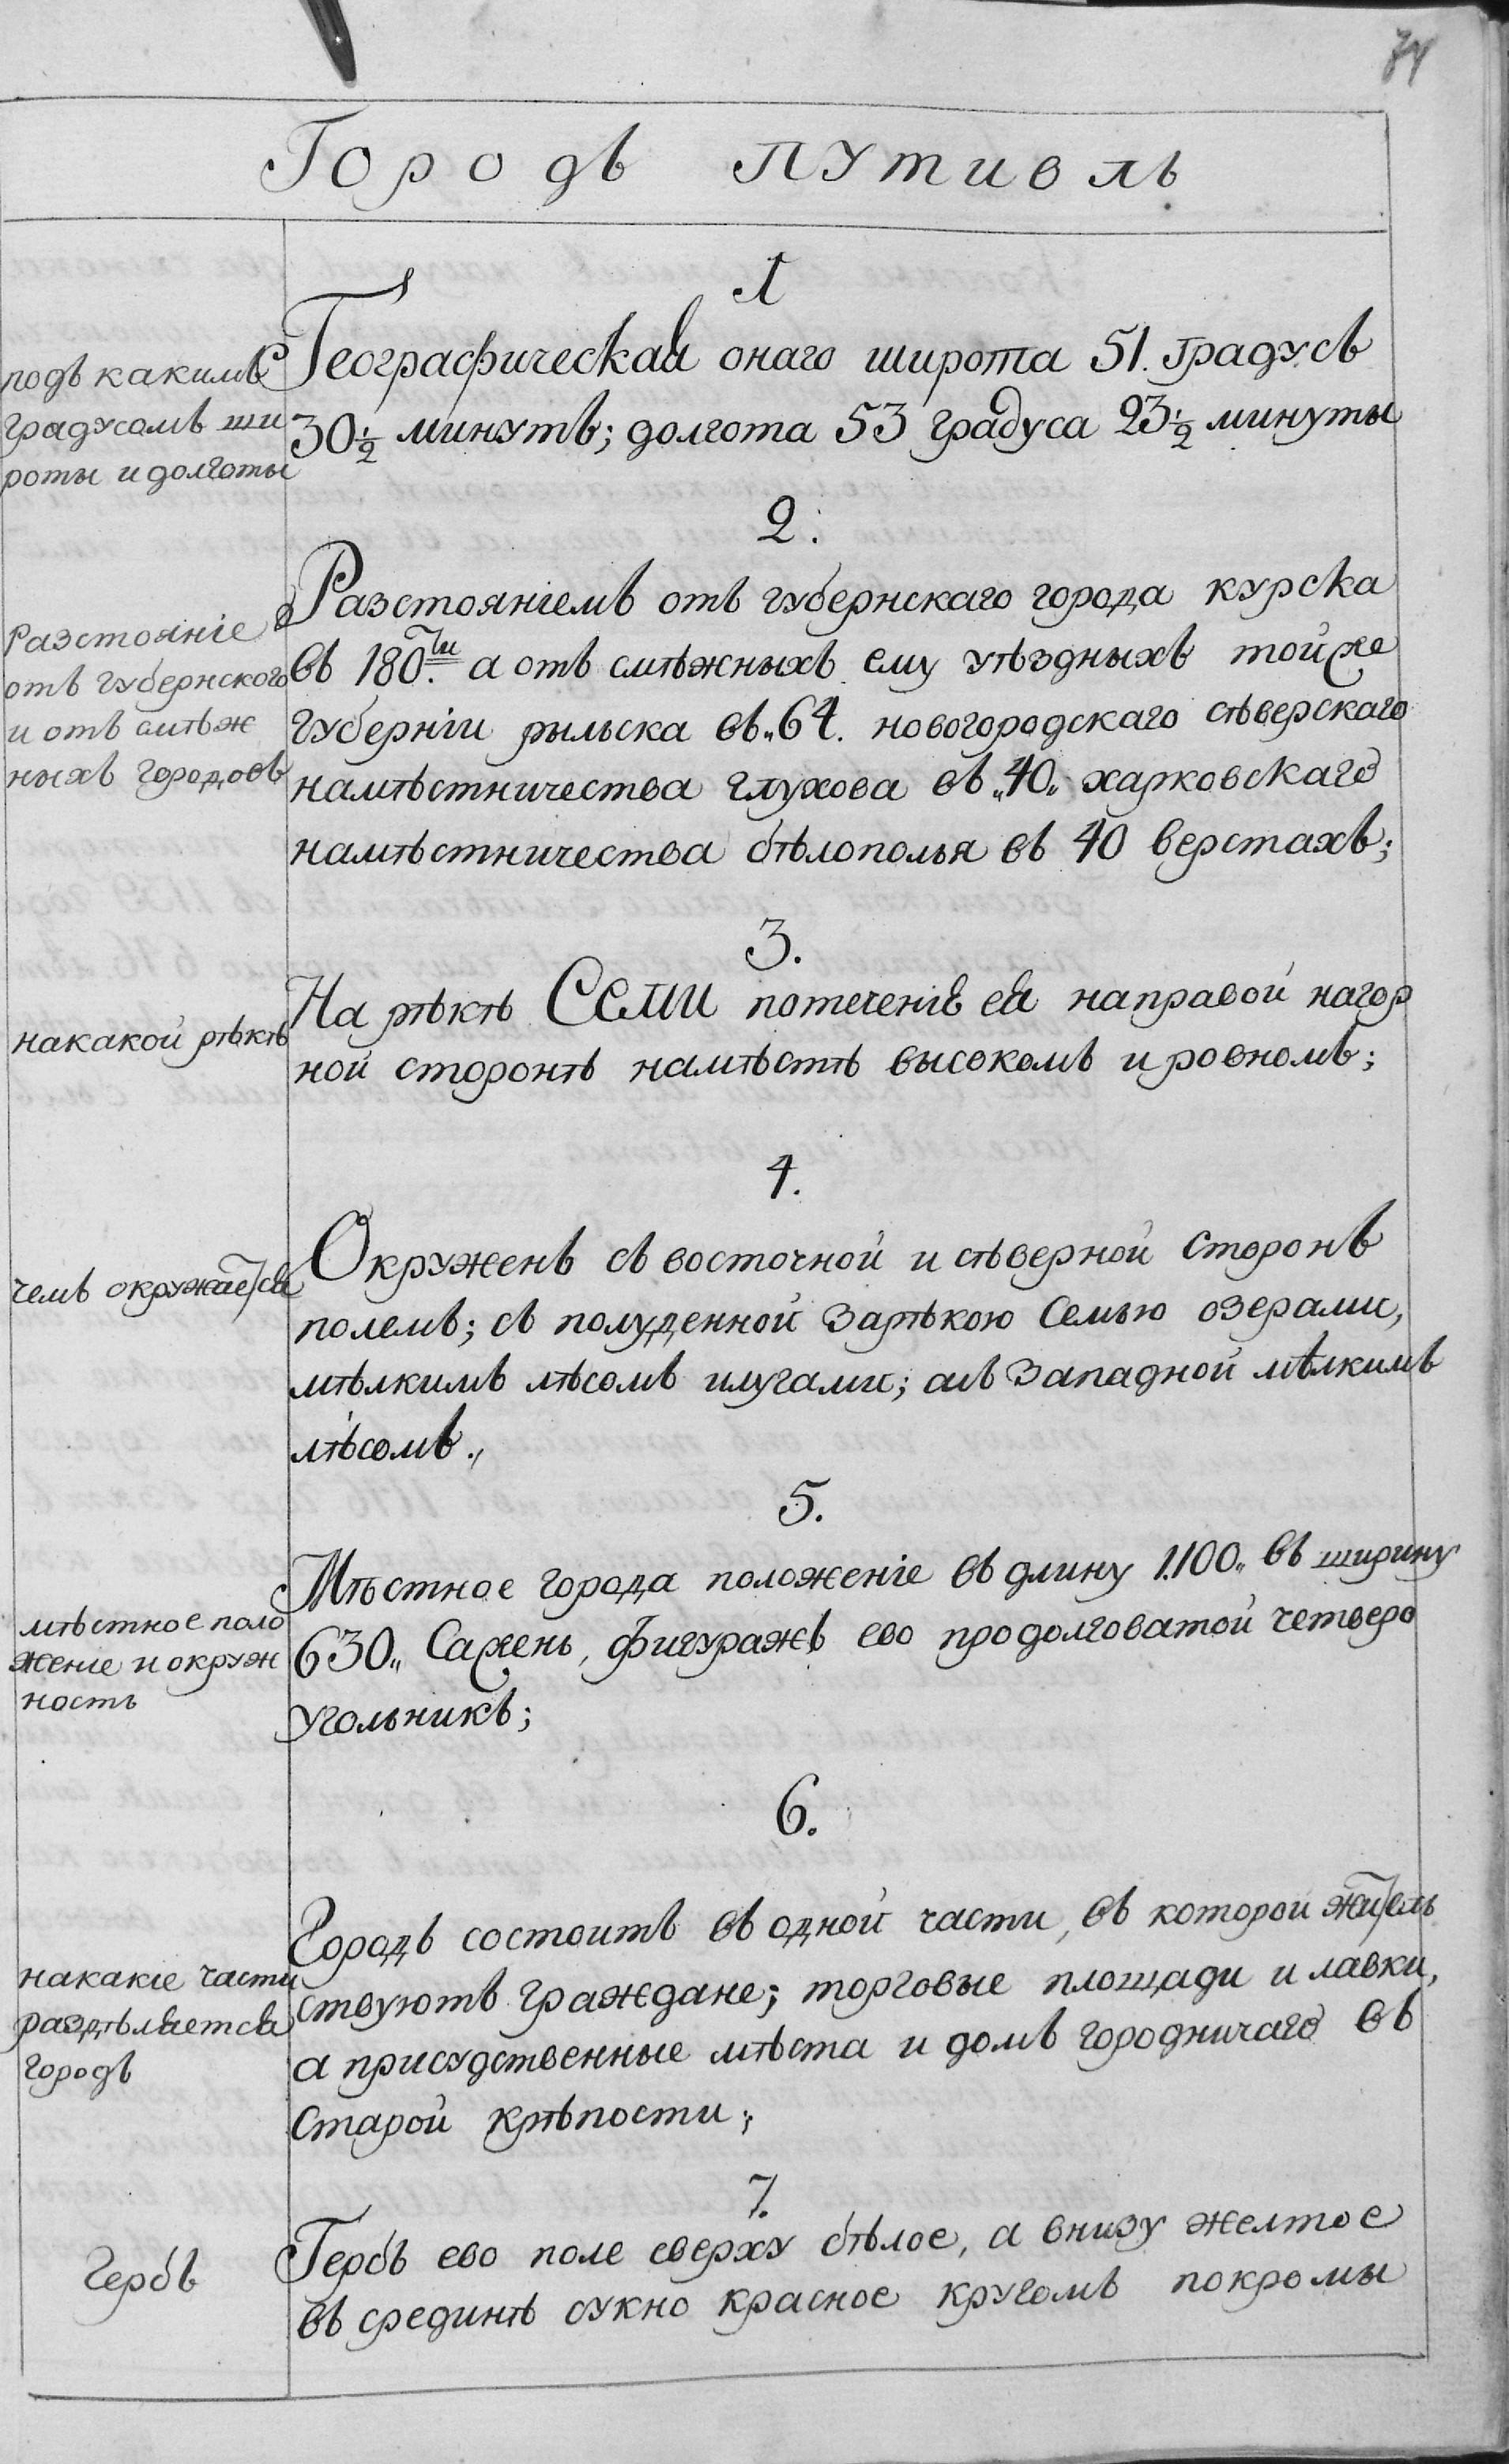 74
Городъ ПУтивль
1
подъ какимъ
градусомъ ши
роты и долготы
Географическая онаго широта 51. градусъ
30 1/2 минутъ; долгота 53 градуса 23 1/2 минуты
2.
Разстояніе
отъ губернского
и отъ смѣж
ныхъ городовъ
Разстояніемъ отъ губернскаго города курска
въ 180.ти а отъ смѣжныхъ ему уѣздныхъ тойже
губерніи рыльска въ „64. новогородскаго сѣверскаго
намѣстничества глухова въ „40„ харковскаго
намѣстничества бѣлополья въ 40 верстахъ;
3.
накакой рѣкѣ
На рѣкѣ Семи потеченіе ея направой нагор
ной сторонѣ намѣстѣ высокомъ и ровномъ;
4.
чемъ окружается
Окруженъ съ восточной и сѣверной сторонъ
полемъ; съ полуденной зарѣкою Семью озерами,
мѣлкимъ лѣсомъ илугами; асъ западной мѣлкимъ
лѣсомъ.,
5.
мѣстное поло
женіе и окруж
ность
Мѣстное города положеніе въ длину 1.100„ въ ширину
630„ Сажень, фигуражъ ево продолговатой четверо
угольникъ;
6.
накакіе части
раздѣляется
городъ
Городъ состоитъ въ одной части, въ которой жител
ствуютъ граждане; торговые площади и лавки,
а присудственные мѣста и домъ городничаго въ
старой крѣпости;
7.
Гербъ
Гербъ ево поле сверху бѣлое, а внизу желтое
въ срединѣ сукно красное кругомъ покромы